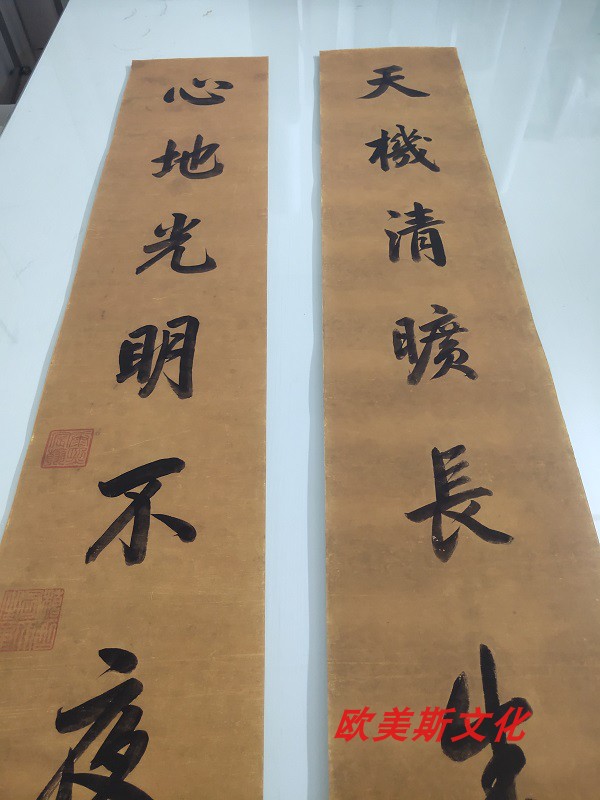 天機清曠長生
心地光明不夜
欧美斯文化